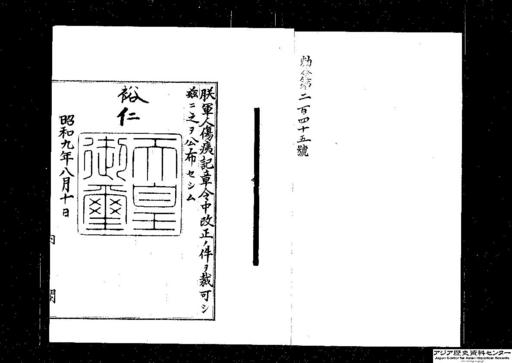 勅令第二百四十五號
朕軍人傷痍記章令中改正ノ件ヲ裁可シ
茲ニ之ヲ公布セシム
裕仁
天皇
御璽
昭和九年八月十日
内閣
アジア歴史資料センター
Japan Center for Asian Historical Records